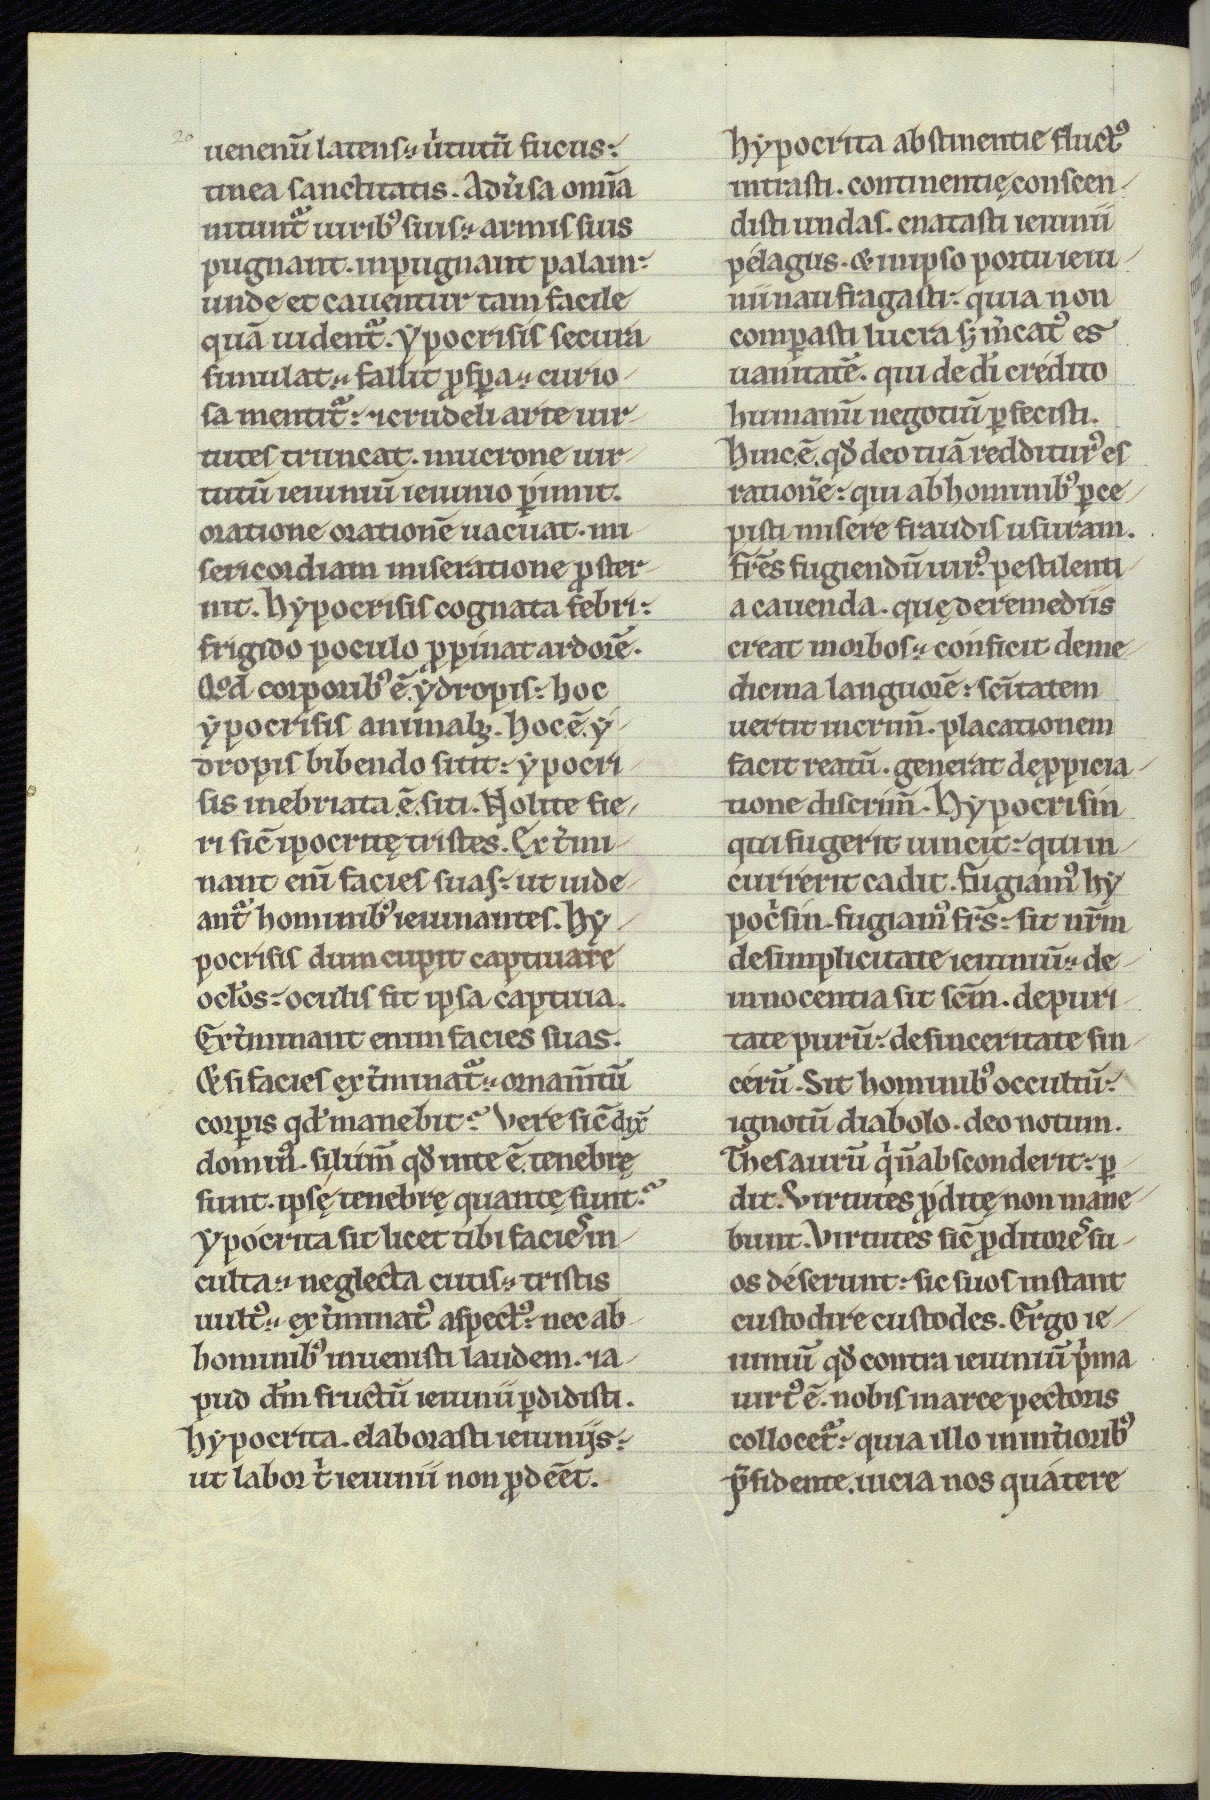 20
uenenū latens·,, u̾tutū fucus:
tinea sanctitatis. Adu̾sa omīa
nitunt᷑ uirib᷒ suis·,, armis suis
pugnant. inpugnant palam:
unde et cauentur tam facile
quā uident᷑. ẏpocrisis secura
simulat·,, fallit ꝓsꝑa·,, curio-
sa mentit᷑: ⁊ crudeli arte uir-
tutes truncat. mucrone uir-
tutū ieiuniū ieiunio ꝑimit.
oratione orationē uacuat. mi-
sericordiam miseratione ꝓster-
nit. hẏpocrisis cognata febri:
frigido poculo ꝓpinat ardorē.
Qod corporib᷒ ē ẏdropis: hoc
ẏpocrisis animabꝫ. hoc ē ẏ-
dropis bibendo sitit: ẏpocri-
sis inebriata ē siti. Nolite fie-
ri sic̄ ipocritę tristes. Ext̾mi-
nant eni᷒ facies suas: ut uide-
ant᷑ hominib᷒ ieiunantes. hẏ-
pocrisis dum cupit captiuare
ocl̓os: oculis fit ipsa captiua.
Ext̾minant enim facies suas.
& si facies ext̾minat᷑·,, ornam̄tū
corꝑis qd̓ manebit? Vere sic̄ dix̄
domin᷒. si lum̄ qđ in te ē tenebrę
sunt. ipsę tenebrę quantę sunt?
ẏpocrita sit licet tibi facies in-
culta·,, neglecta cutis·,, tristis
uult᷒·,, ext̾minat᷒ aspect᷒: nec ab
hominib᷒ inuenisti laudem. ⁊ a-
pud dm̄ fructū ieiunii ꝑdidisti.
hẏpocrita. elaborasti ieiuniis:
ut labor t̓ ieiunii non ꝓdēet.
hẏpocrita abstinentie fluct᷒
intrasti. continentię conscen-
disti undas. enatasti ieiunii
pelagus. & in ipso portu ieiu-
nii naufragasti: quia non
comꝑasti lucra sꝫ m̾cat᷒ es
uanitatē. qui de di̓ credito
humanū negotiū ꝑfecisti.
hinc ē qđ deo tuā redditur᷒ es
rationē: qui ab hominib᷒ ꝑce-
pisti misere fraudis usuram.
fr̄es fugiendū uir᷒. pestilenti-
a cauenda. quę de remediis
creat morbos·,, conficit de me-
dicina languorē: sc̄itatem
uertit in crim̄. placationem
facit reatū. generat de ꝓpicia-
tione discrim̄. hẏpocrisin
qui fugerit uincit: qui in-
currerit cadit. fugiam᷒ hẏ-
poc̓sin. fugiam᷒ fr̄s: sit nr̄m
de simplicitate ieiuniū·,, de
innocentia sit sc̄m. de puri-
tate purū: de sinceritate sin-
cerū. Sit hominib᷒ occultū:
ignotū diabolo. deo notum.
Thesaurū q̓ n̄ absconderit: ꝑ-
dit. Virtutes ꝓditę non mane-
bunt. Virtutes sic̄ ꝓditores su-
os deserunt: sic suos instant
custodire custodes. Ergo ie-
iuniū qđ contra ieiuniū p̓ma
uirt᷒ ē. nobis in arce pectoris
collocet᷑: quia illo in int̾iorib᷒
p̄sidente. uicia nos quatere